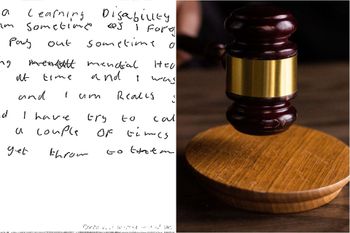 a Learning Disability
am Sometime as I Forg
Pay out sometime o
ng mendal Hea
at time and I was
and I am Really s
d I have try to cal
a couple OF times
get throw to them